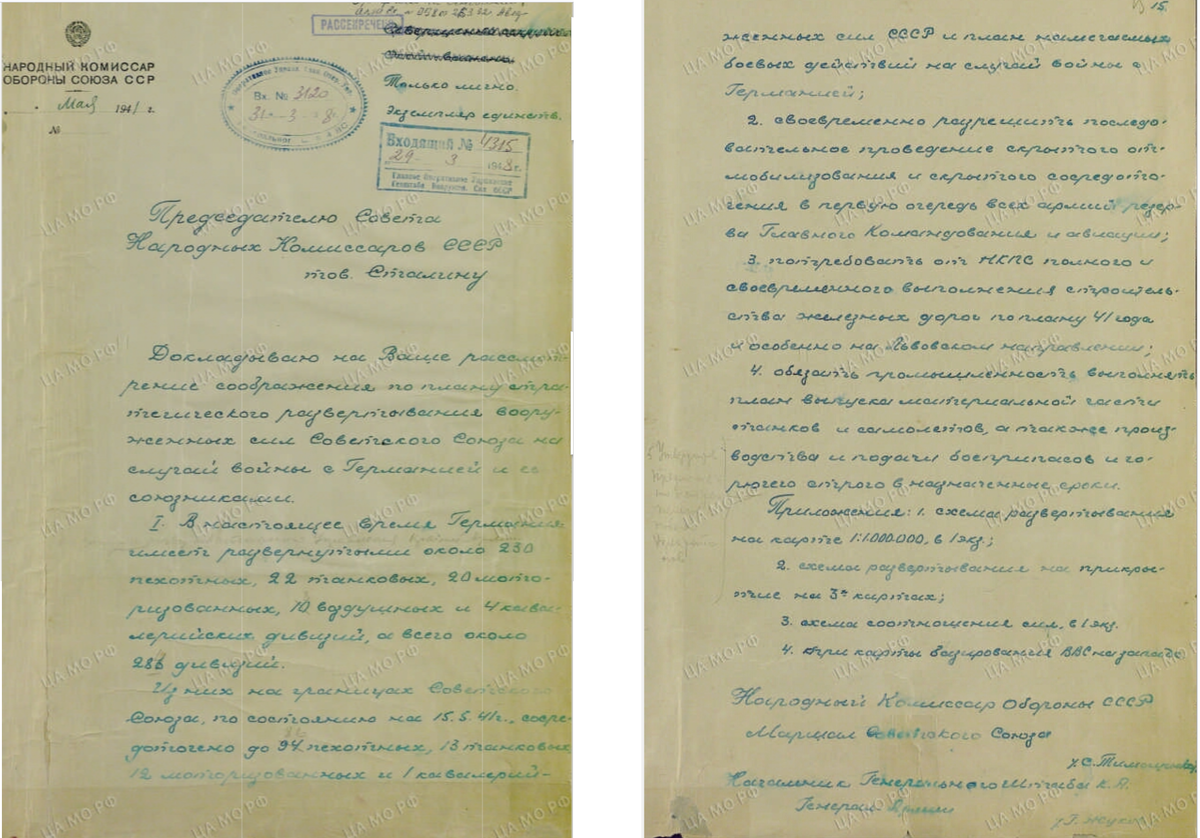 РАССЕКРЕЧЕНО
НАРОДНЫЙ КОМИССАР
ОБОРОНЫ СОЮЗА ССР
Мая 1941 г.
№
Только лично.
Экземпляр единств.
Вх. № 3120
Входящий № 4315
29 3 1948 г.
Председателю Совета
Народных Комиссаров СССР
тов. Сталину
Докладываю на Ваше рассмот-
рение соображения по плану стра-
тегического развертывания воору-
женных сил Советского Союза на
случай войны с Германией и ее
союзниками.
I. В настоящее время Германия
имеет развернутыми около 230
пехотных, 22 танковых, 20 мото-
ризованных, 10 воздушных и 4 кава-
лерийских дивизий, а всего около
286 дивизий.
Из них на границах Советского
Союза, по состоянию на 15.5.41 г., сосре-
доточено до 94 пехотных, 13 танковых,
12 моторизованных и 1 кавалерий-
15.
женных сил СССР и план намечаемых
боевых действий на случай войны с
Германией;
2. своевременно разрешить последо-
вательное проведение скрытого от-
мобилизования и скрытого сосредото-
чения в первую очередь всех армий резер-
ва Главного Командования и авиации;
3. потребовать от НКПС полного и
своевременного выполнения строитель-
ства железных дорог по плану 41 года
и особенно на Львовском направлении;
4. обязать промышленность выполнять
план выпуска материальной части
танков и самолетов, а также произ-
водства и подачи боеприпасов и го-
рючего строго в назначенные сроки.
Приложения: 1. схема развертывания
на карте 1:1.000.000, в 1 экз.;
2. схема развертывания на прикры-
тие на 3х картах;
3. схема соотношения сил, в 1 экз.
4. три карты базирования ВВС на западе
Народный Комиссар Обороны СССР
Маршал Советского Союза
С. Тимошенко
Начальник Генерального Штаба К.А.
Генерал Армии
Г. Жуков
ЦА МО РФ